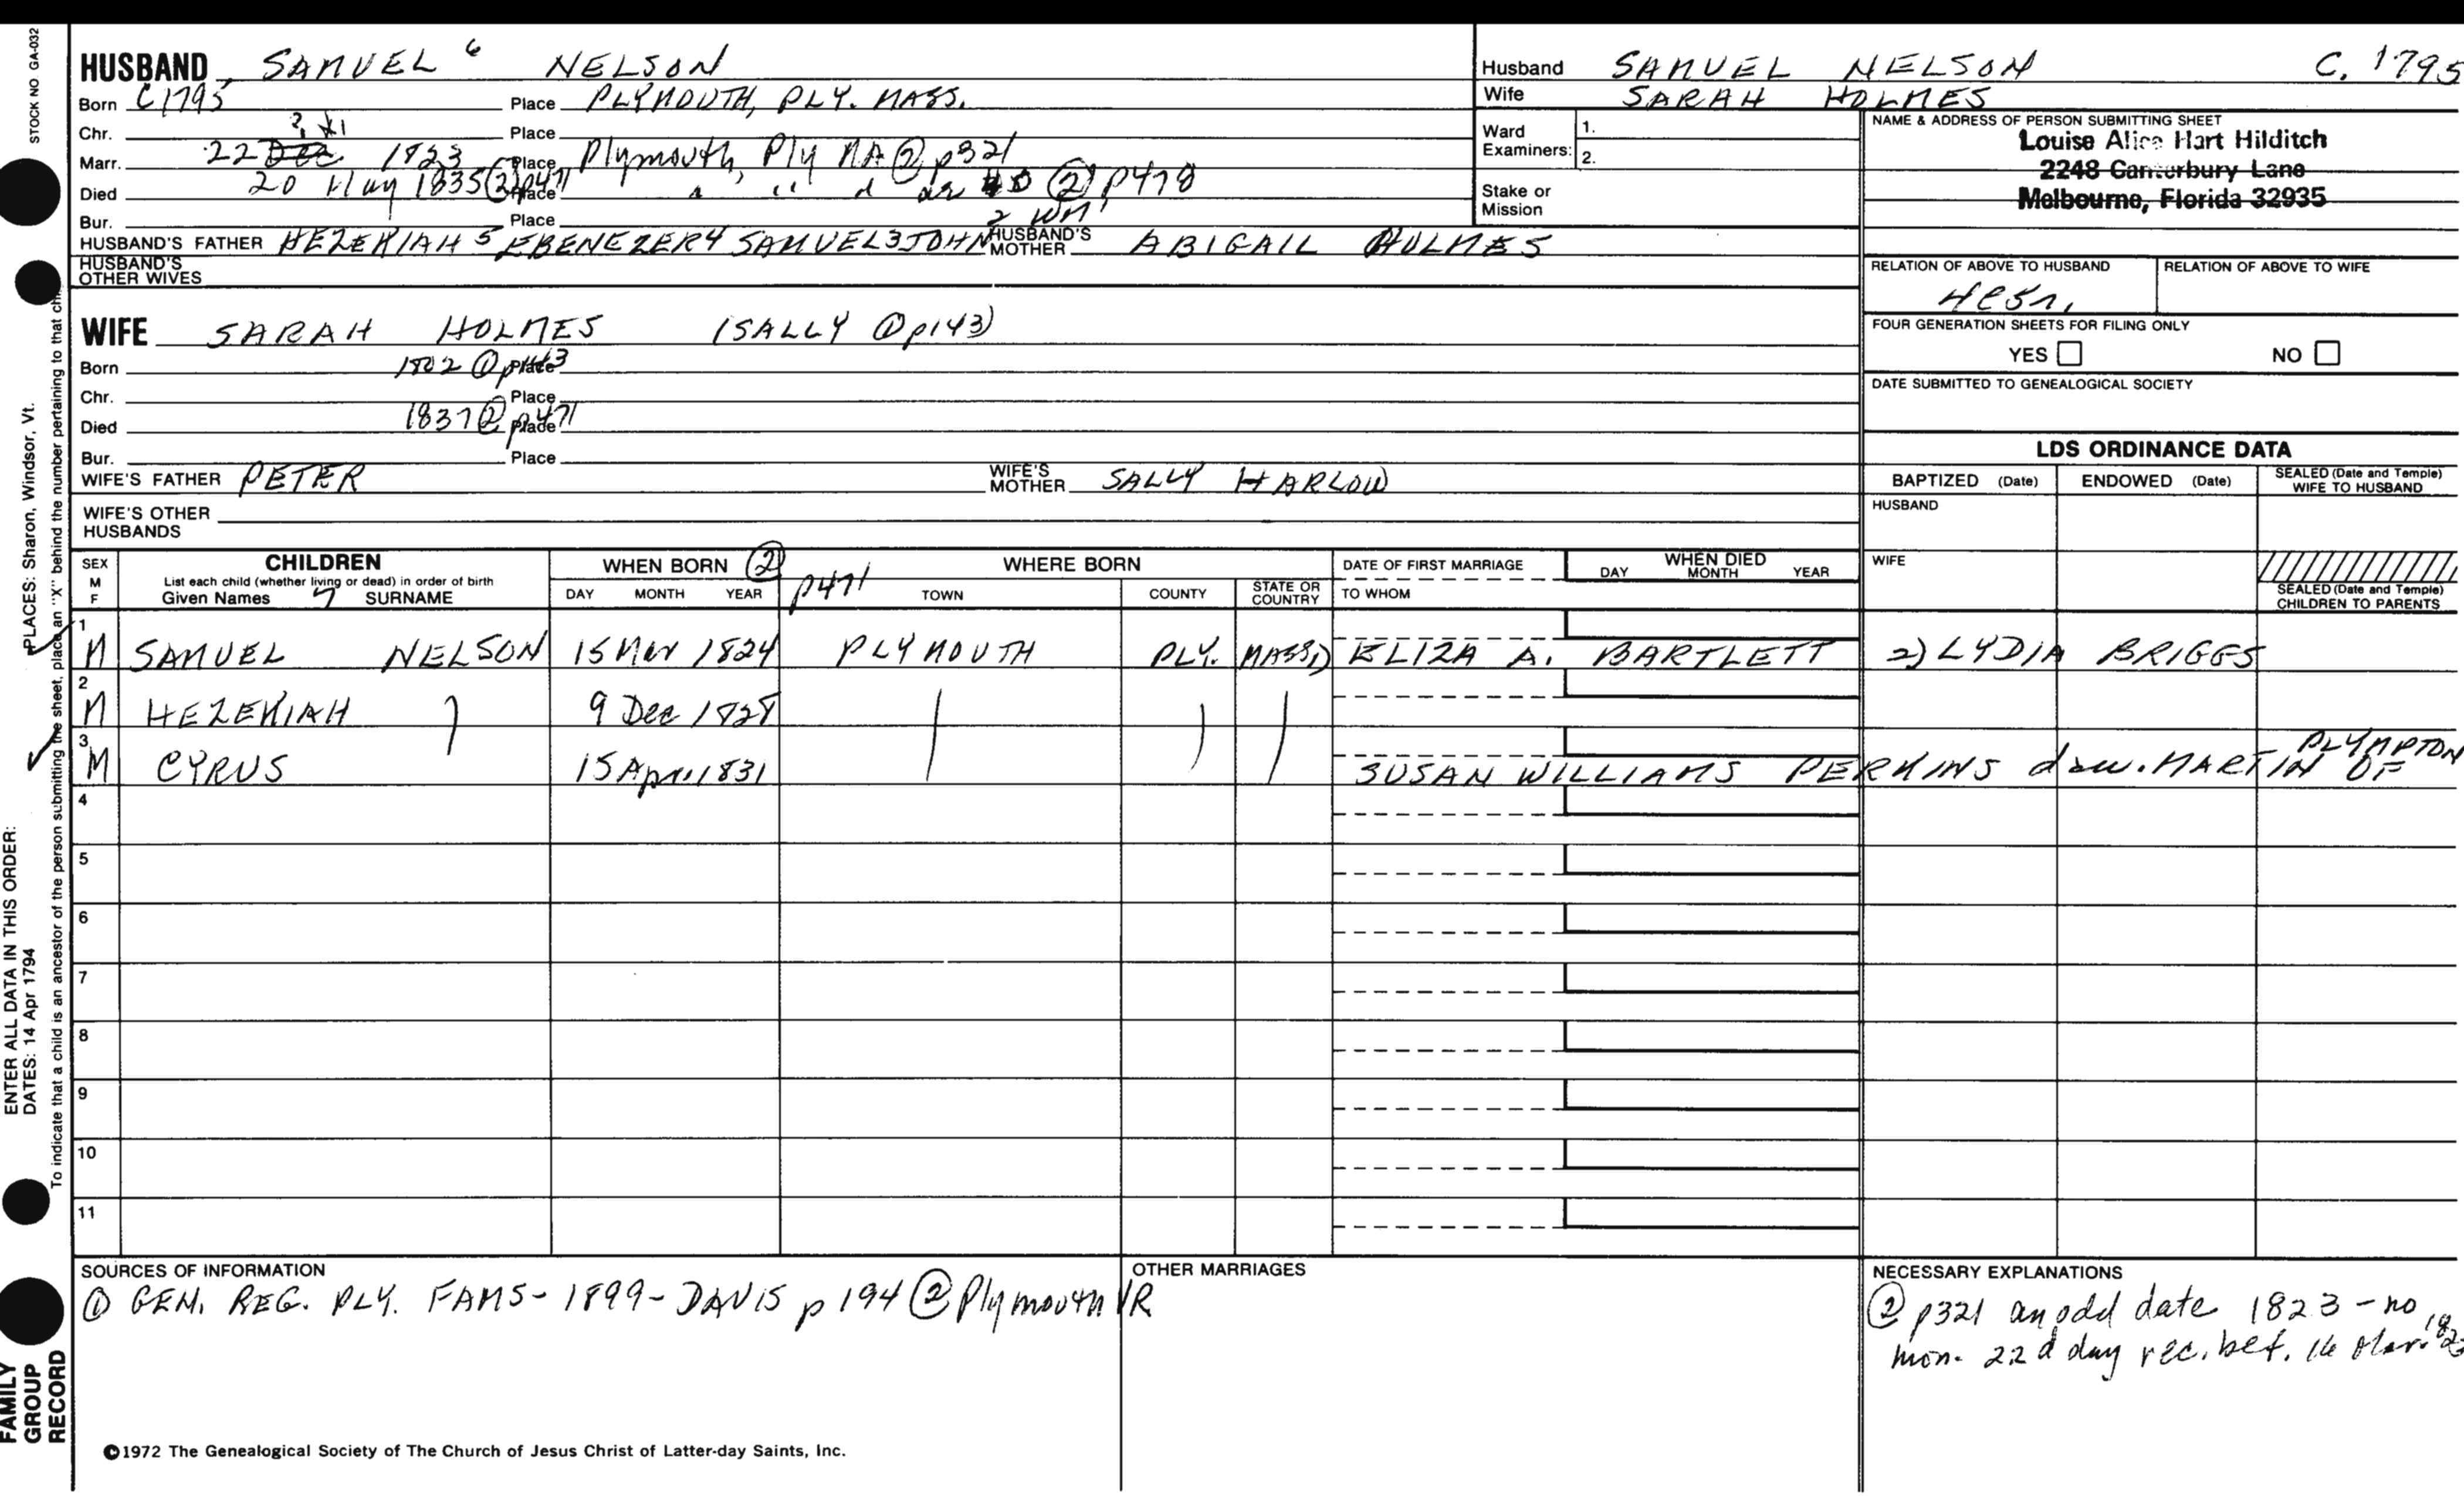 STOCK NO GA-032
HUSBAND SAMUEL 6 NELSON
Born C1795 Place PLYMOUTH, PLY. MASS.
Chr. Place
Marr. 22 Dec 1823 Place Plymouth, Ply MA ② p321
Died 20 May 1835 ② p471 Place " " " ② p478
Bur. Place
HUSBAND'S FATHER HEZEKIAH 5 EBENEZER 4 SAMUEL 3 JOHN 2 WM 1 HUSBAND'S MOTHER ABIGAIL HOLMES
HUSBAND'S OTHER WIVES
WIFE SARAH HOLMES (SALLY ① p143)
Born 1802 ① p143 Place
Chr. Place
Died 1837 ② p471 Place
Bur. Place
WIFE'S FATHER PETER WIFE'S MOTHER SALLY HARLOW
WIFE'S OTHER HUSBANDS
Husband SAMUEL NELSON C. 1795
Wife SARAH HOLMES
Ward Examiners: 1.
2.
Stake or Mission
NAME & ADDRESS OF PERSON SUBMITTING SHEET
Louise Alice Hart Hilditch
2248 Canterbury Lane
Melbourne, Florida 32935
RELATION OF ABOVE TO HUSBAND RELATION OF ABOVE TO WIFE
FOUR GENERATION SHEETS FOR FILING ONLY
YES NO
DATE SUBMITTED TO GENEALOGICAL SOCIETY
LDS ORDINANCE DATA
BAPTIZED (Date) ENDOWED (Date) SEALED (Date and Temple) WIFE TO HUSBAND
HUSBAND
WIFE
SEALED (Date and Temple) CHILDREN TO PARENTS
SEX M F CHILDREN WHEN BORN ② p471 WHERE BORN DATE OF FIRST MARRIAGE WHEN DIED
List each child (whether living or dead) in order of birth
Given Names 7 SURNAME DAY MONTH YEAR TOWN COUNTY STATE OR COUNTRY TO WHOM DAY MONTH YEAR
1 M SAMUEL NELSON 15 Nov 1824 PLYMOUTH PLY. MASS. 1) ELIZA A. BARTLETT 2) LYDIA BRIGGS
2 M HEZEKIAH 9 Dec 1828
3 M CYRUS 15 Apr. 1831 SUSAN WILLIAMS PERKINS dau. MARTIN OF PLYMPTON
4
5
6
7
8
9
10
11
SOURCES OF INFORMATION
① GEN. REG. PLY. FAMS - 1899 - DAVIS p 194 ② Plymouth VR
OTHER MARRIAGES
NECESSARY EXPLANATIONS
② p321 an odd date 1823 - no
mon. 22d day rec. bef. 16 Mar.
©1972 The Genealogical Society of The Church of Jesus Christ of Latter-day Saints, Inc.
PLACES: Sharon, Windsor, Vt.
ENTER ALL DATA IN THIS ORDER:
DATES: 14 Apr 1794
To indicate that a child is an ancestor of the person submitting the sheet, place an "X" behind the number pertaining to that
FAMILY
GROUP
RECORD